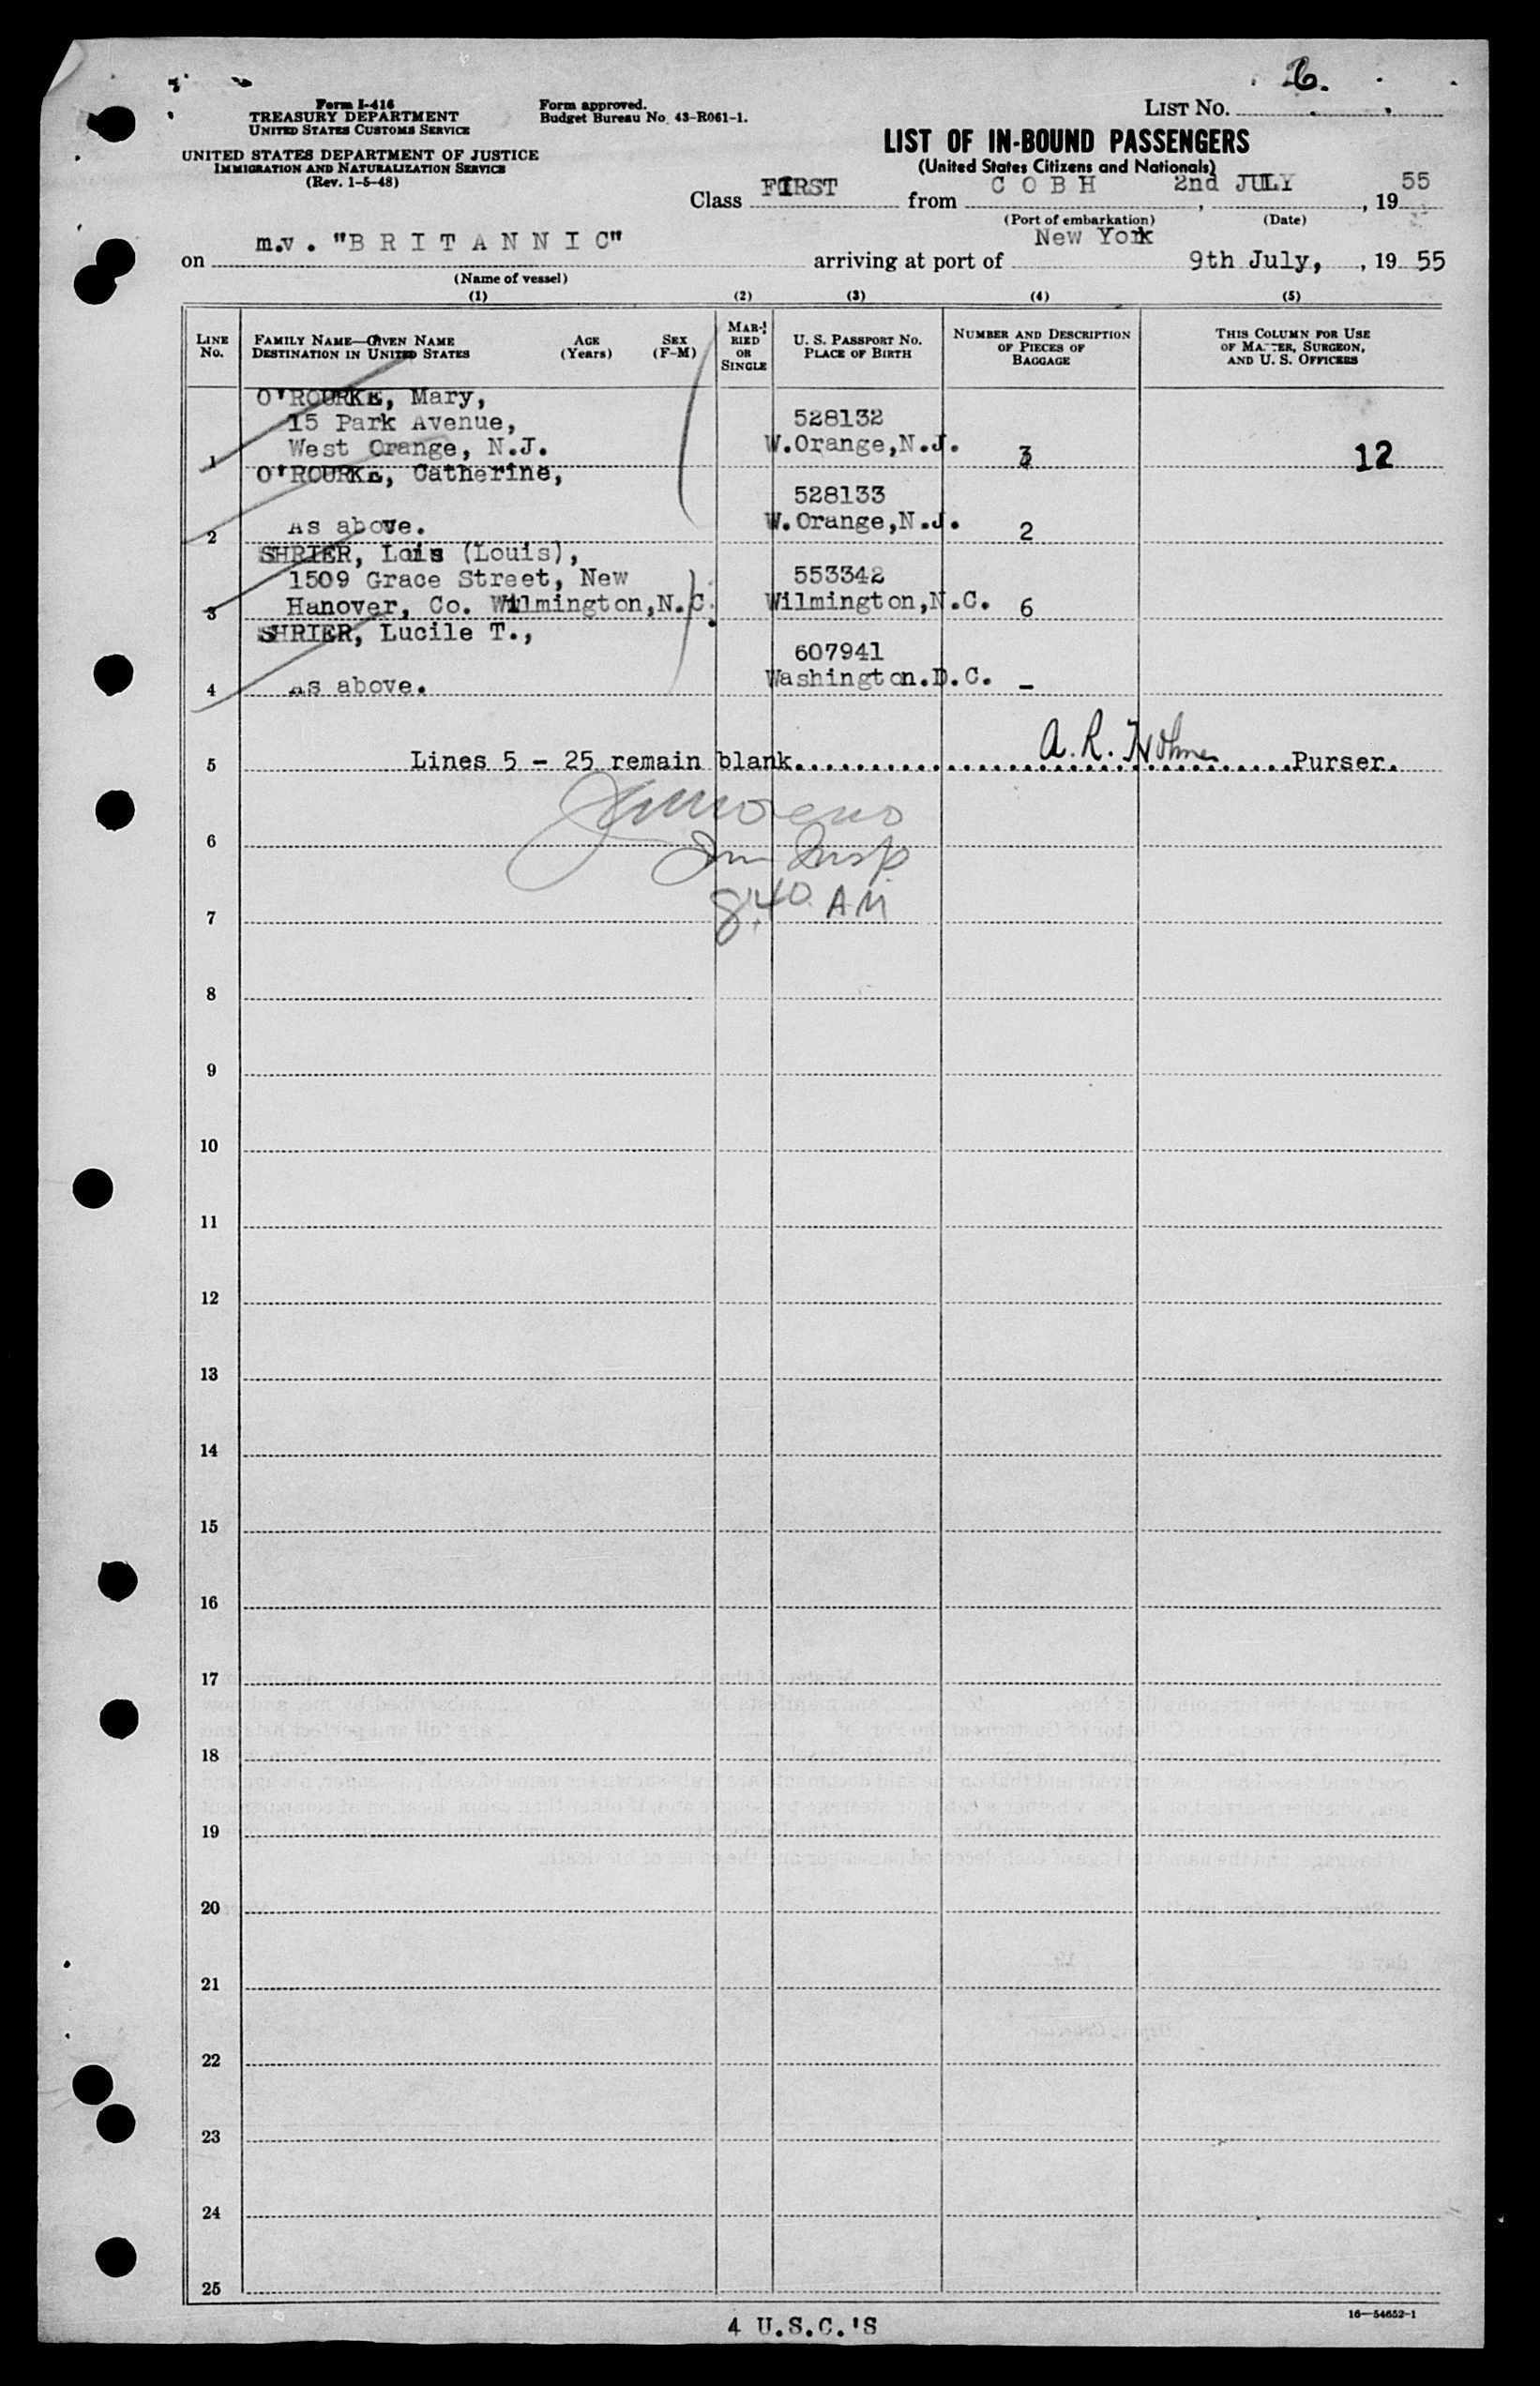 6.
Form I-416
TREASURY DEPARTMENT
UNITED STATES CUSTOMS SERVICE
Form approved.
Budget Bureau No. 43-R061-1.
LIST NO.
UNITED STATES DEPARTMENT OF JUSTICE
IMMIGRATION AND NATURALIZATION SERVICE
(Rev. 1-5-48)
LIST OF IN-BOUND PASSENGERS
(United States Citizens and Nationals)
Class FIRST from C O B H , 2nd JULY , 19 55
(Port of embarkation) (Date)
on m.v. "B R I T A N N I C" arriving at port of New York 9th July, , 19 55
(Name of vessel)
(1) (2) (3) (4) (5)
LINE NO. FAMILY NAME—GIVEN NAME DESTINATION IN UNITED STATES AGE (Years) SEX (F-M) MARRIED OR SINGLE U. S. PASSPORT NO. PLACE OF BIRTH NUMBER AND DESCRIPTION OF PIECES OF BAGGAGE THIS COLUMN FOR USE OF MASTER, SURGEON, AND U. S. OFFICERS
O'ROURKE, Mary,
15 Park Avenue, 528132
1 West Orange, N.J. W.Orange,N.J. 3 12
O'ROURKE, Catherine,
528133
2 As above. W.Orange,N.J. 2
SHRIER, Lois (Louis),
1509 Grace Street, New 553342
3 Hanover, Co. Wilmington,N.C. Wilmington,N.C. 6
SHRIER, Lucile T.,
607941
4 As above. Washington.D.C. -
5 Lines 5 - 25 remain blank.................................Purser.
A. R. Holmes
6 Imm Insp
7 8:40 AM
8
9
10
11
12
13
14
15
16
17
18
19
20
21
22
23
24
25
16—54652-1
4 U.S.C.'S